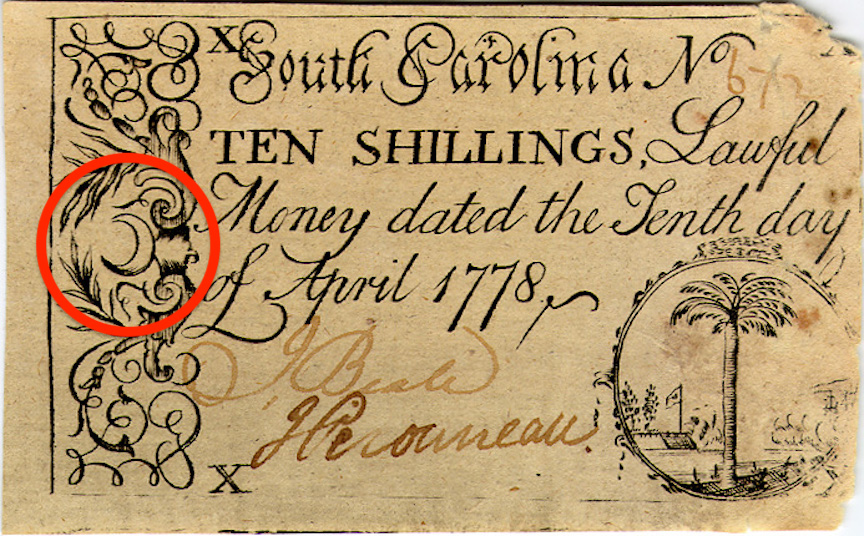 X South Carolina No 672
TEN SHILLINGS, Lawful
Money dated the Tenth day
of April 1778.
J Beale
J Peronneau.
X